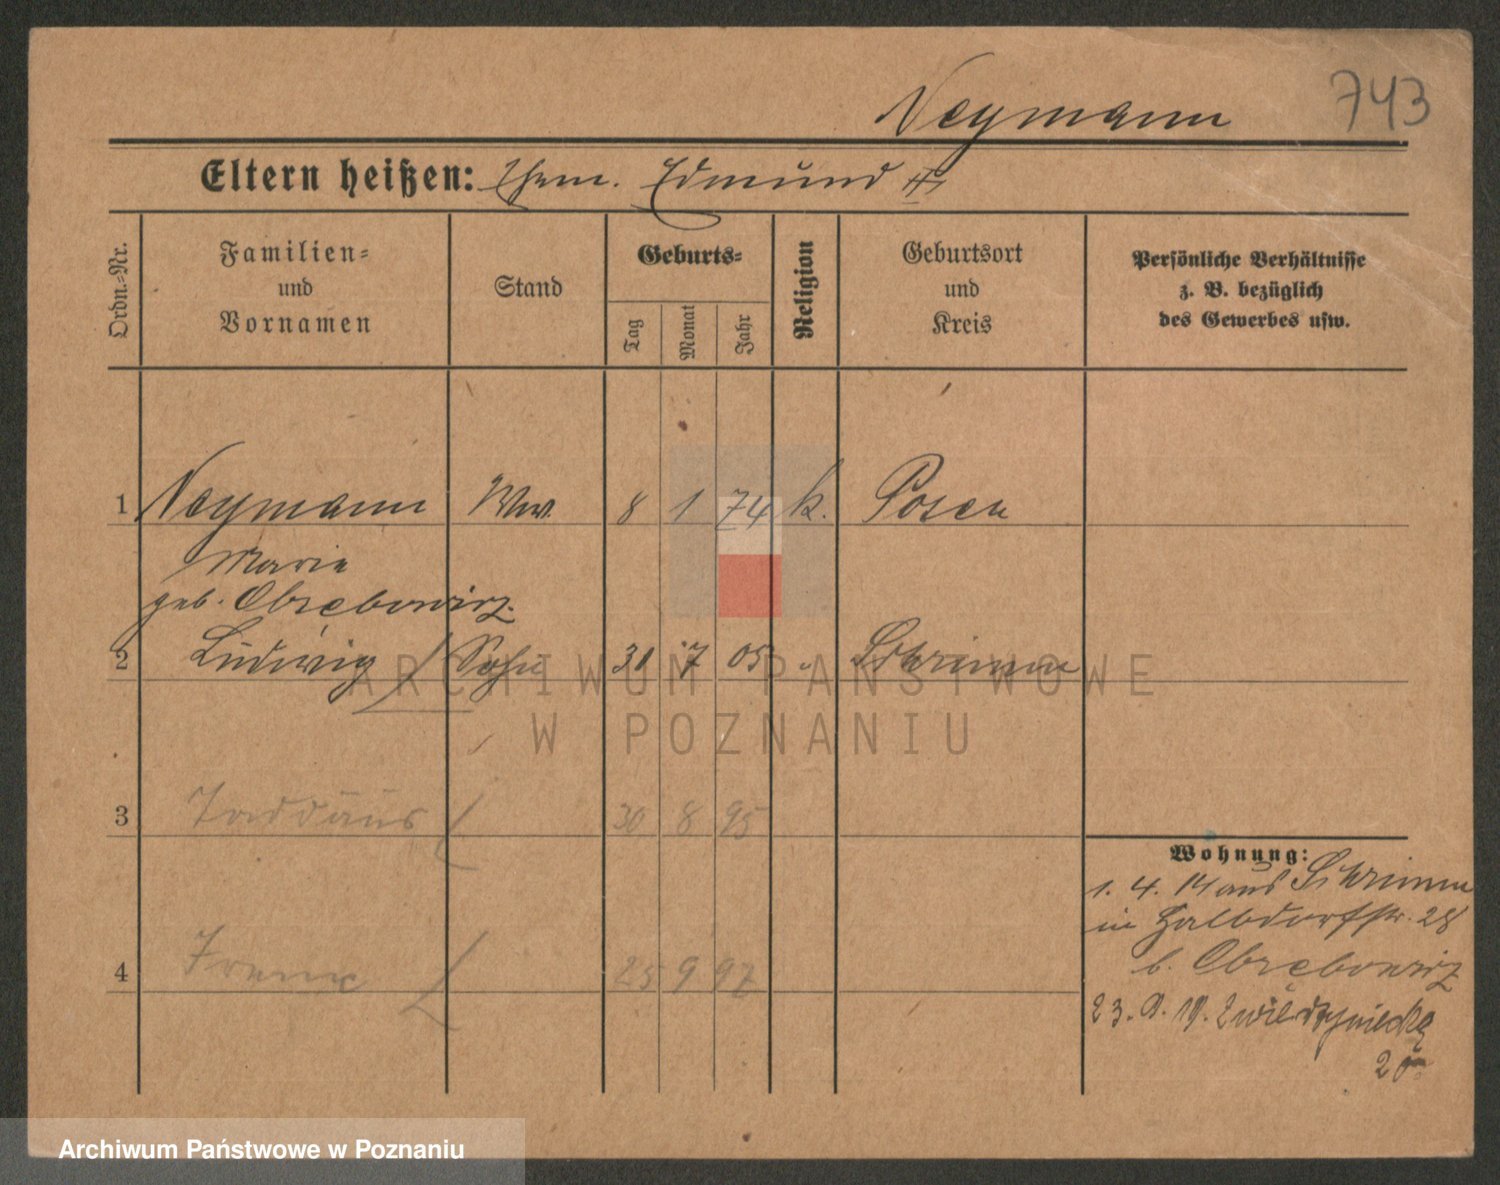 Neymann 743
Eltern heißen: Ehem. Edmund
Ordn.-Nr.
Familien-
und
Vornamen
Stand
Geburts-
Tag
Monat
Jahr
Religion
Geburtsort
und
Kreis
Persönliche Verhältnisse
z. B. bezüglich
des Gewerbes usw.
1 Neymann Ww. 8 1 74 k. Posen
Marie
geb. Obrębowicz
2 Ludwig Sohn 31 7 05 " Schrimm
3 Taddäus 30 8 95
4 Franz 25 9 97
Wohnung:
1. 4. 14 aus Schrimm
in Halbdorfstr. 28
b. Obrębowicz
23. 9. 19.
ARCHIWUM PAŃSTWOWE
W POZNANIU
Archiwum Państwowe w Poznaniu